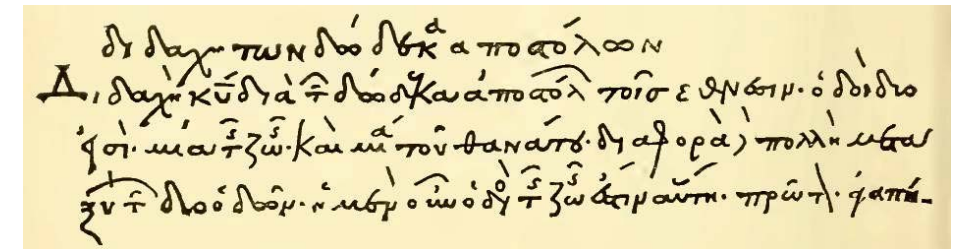 διδαχὴ τῶν δώδεκα ἀποστόλων
Διδαχὴ κῡ διὰ τ̑ δώδεκα ἀποστόλ τοῖσ ἔθνεσιν· ὁδοὶ δύο
εἰσί· μία τ̑ ζω̑· καὶ μία τοῦ θανάτου· διαφορὰ δὲ πολλὴ μετα
ξὺ τ̑ δύο ὁδῶν· ἡ μὲν οὖν ὁδὸς τ̑ ζω̑ ἐστιν αὕτη· πρῶτ· ἀγαπή-